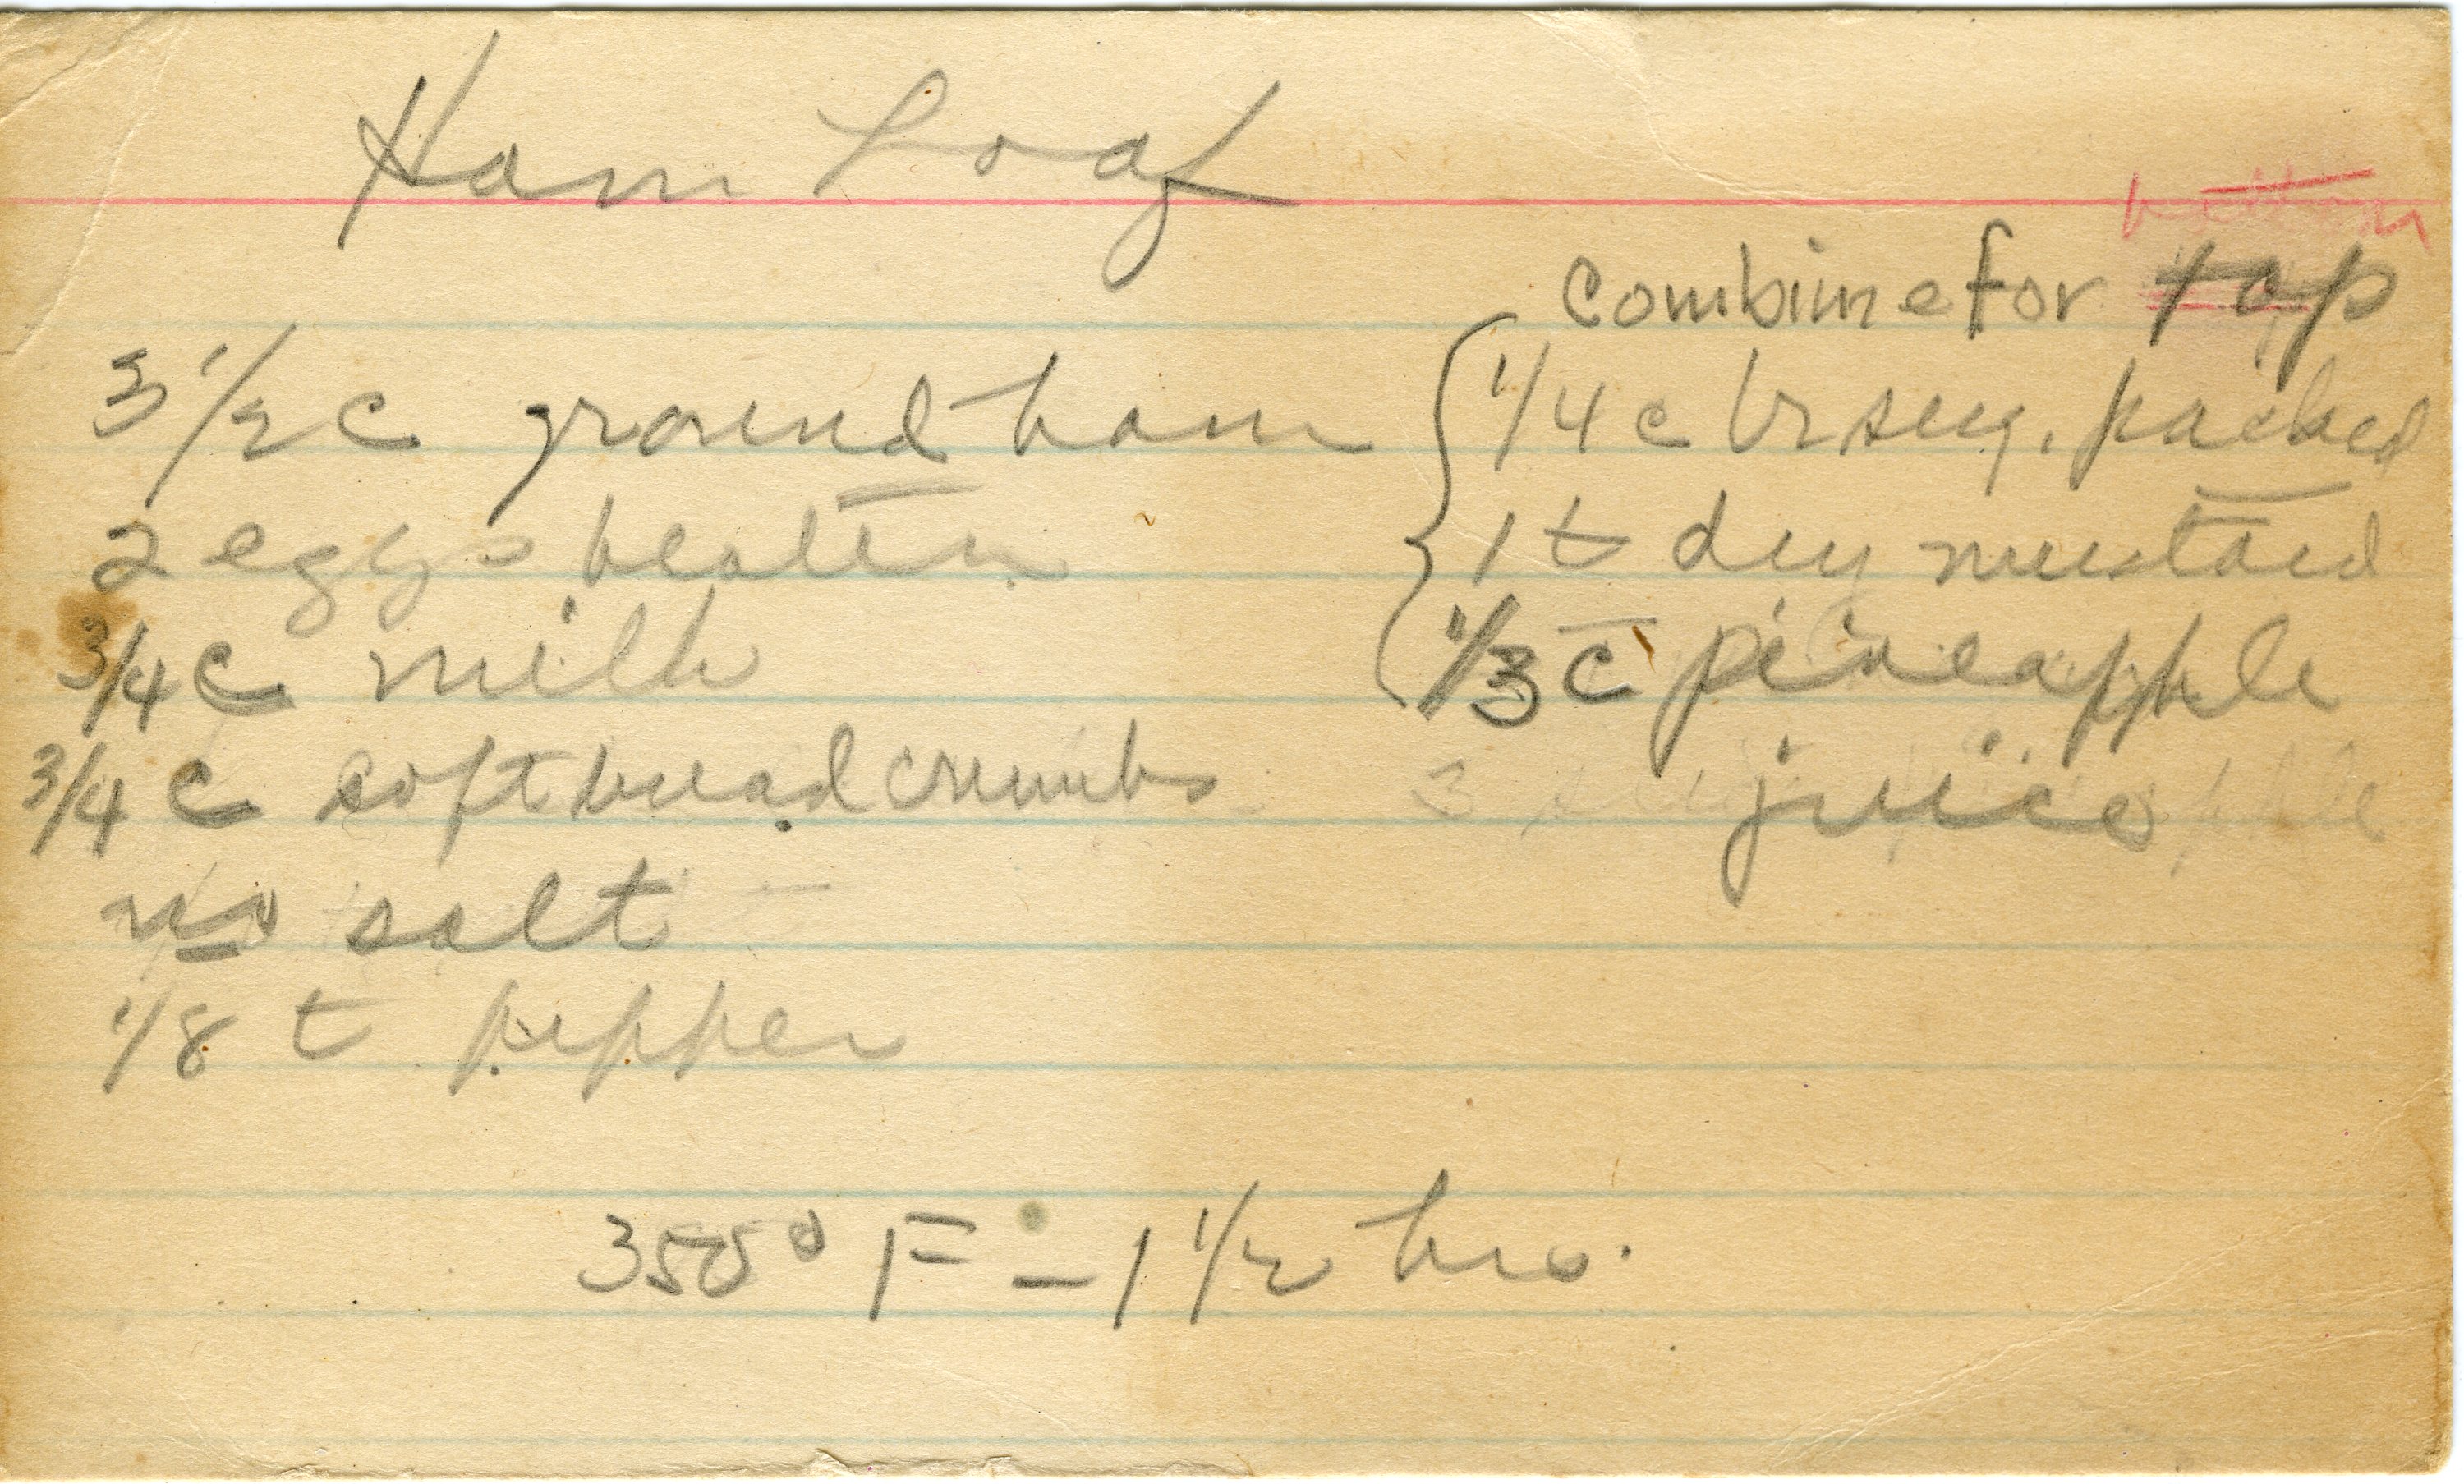 Ham Loaf
bottom
combine for top
3 1/2 c ground ham
2 eggs beaten
3/4 c milk
3/4 c soft bread crumbs
no salt
1/8 t pepper
1/4 c br sug. packed
1 t dry mustard
1/3 c pineapple
juice
350° F - 1 1/2 hrs.